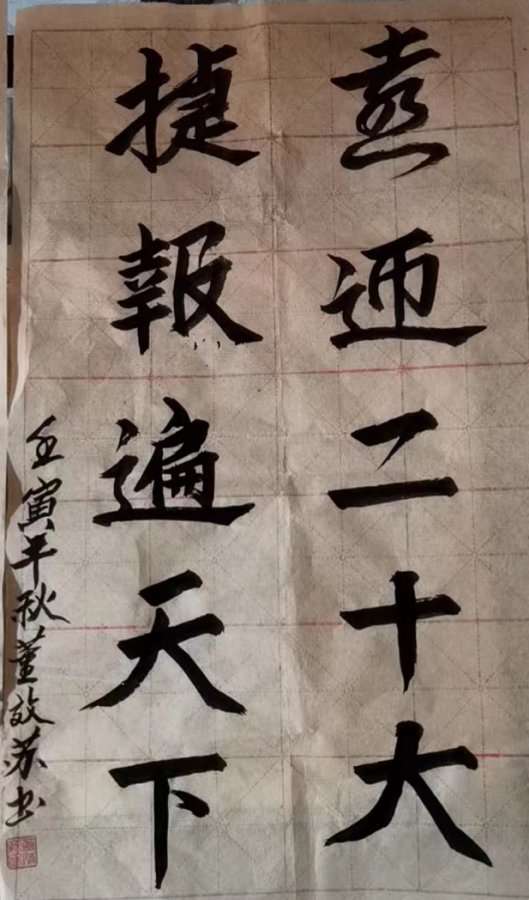 喜迎二十大
捷報遍天下
壬寅年秋董啟苏书